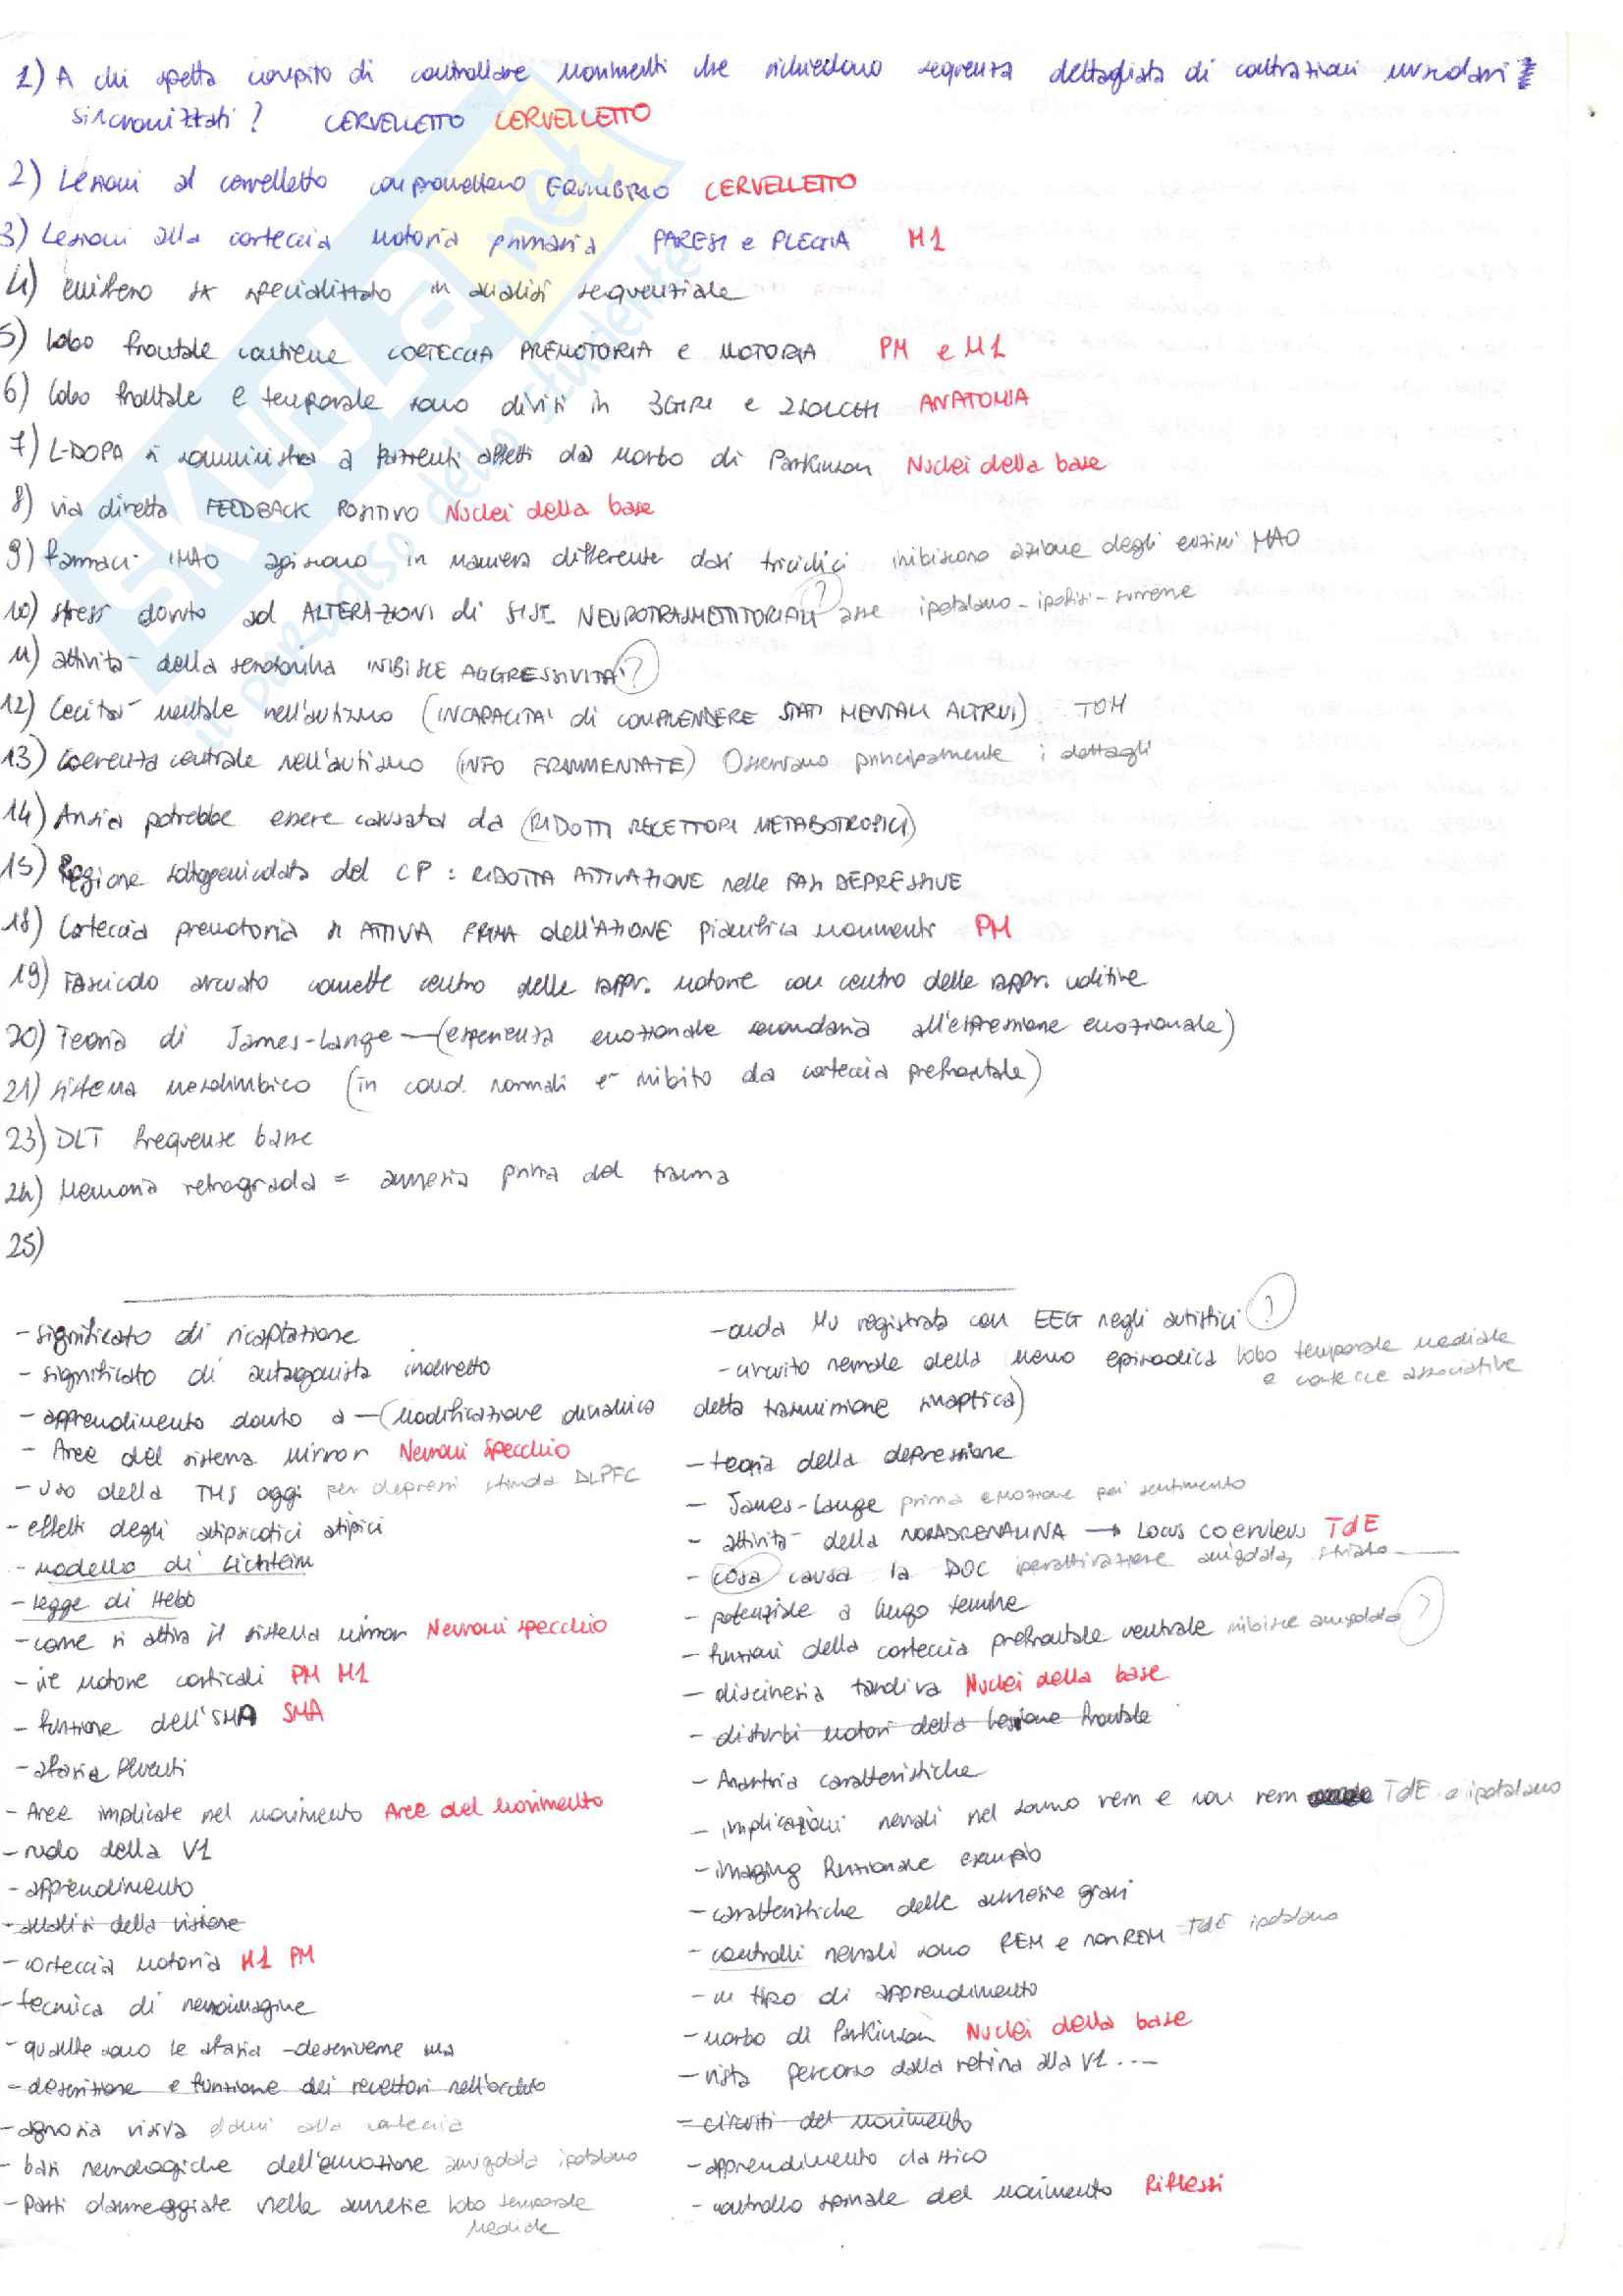 1) A chi spetta compito di controllare movimenti che richiedono sequenza dettagliata di contrazioni muscolari
sincronizzati? CERVELLETTO CERVELLETTO
2) Lesioni al cervelletto compromettono EQUILIBRIO CERVELLETTO
3) Lesioni alla corteccia motoria primaria PARESI e PLEGIA M1
4) emisfero sx specializzato in analisi sequenziale
5) Lobo frontale contiene CORTECCIA PREMOTORIA e MOTORIA PM e M1
6) Lobo frontale e temporale sono divisi in 3 GIRI e 2 SOLCHI ANATOMIA
7) L-DOPA si somministra a pazienti affetti da morbo di Parkinson Nuclei della base
8) via diretta FEEDBACK POSITIVO Nuclei della base
9) farmaci IMAO agiscono in maniera differente dai triciclici inibiscono azione degli enzimi MAO
10) stress dovuto ad ALTERAZIONI di SIST. NEUROTRASMETTITORIALI ? asse ipotalamo-ipofisi-surrene
11) attività della serotonina INIBISCE AGGRESSIVITA' ?
12) Cecità mentale nell'autismo (INCAPACITA' di COMPRENDERE STATI MENTALI ALTRUI) TOM
13) Coerenza centrale nell'autismo (INFO FRAMMENTATE) Osservano principalmente i dettagli
14) Ansia potrebbe essere causata da (RIDOTTI RECETTORI METABOTROPICI)
15) Regione sottogenicolata del CP: RIDOTTA ATTIVAZIONE nelle FASI DEPRESSIVE
18) Corteccia premotoria si ATTIVA PRIMA dell'AZIONE pianifica movimenti PM
19) Fascicolo arcuato connette centro delle rappr. motorie con centro delle rappr. uditive
20) Teoria di James-Lange — (esperienza emozionale secondaria all'espressione emozionale)
21) sistema mesolimbico (in cond. normali è inibito da corteccia prefrontale)
23) DLT frequenze basse
24) Memoria retrograda = amnesia prima del trauma
25)
- significato di ricaptazione
- significato di antagonista indiretto
- apprendimento dovuto a — (modificazione dinamica della trasmissione sinaptica)
- Aree del sistema mirror Neuroni Specchio
- uso della TMS oggi per depressi stimola DLPFC
- effetti degli atipsicotici atipici
- modello di Lichteim
- legge di Hebb
- come si attiva il sistema mirror Neuroni specchio
- vie motorie corticali PM M1
- funzione dell'SMA SMA
- afasie fluenti
- Aree implicate nel movimento Aree del movimento
- ruolo della V1
- apprendimento
- analisi della visione
- corteccia motoria M1 PM
- tecnica di neuroimagine
- qualle sono le afasia - descriverne una
- descrizione e funzione dei recettori nell'occhio
- agnosia visiva danni alla corteccia
- basi neurologiche dell'emozione amigdala ipotalamo
- Parti danneggiate nelle amnesie lobo temporale
mediale
- onda Mu registrata con EEG negli autistici ?
- circuito neurale della memo episodica lobo temporale mediale
e cortecce associative
- teoria della depressione
- James-Lange prima emozione poi sentimento
- attività della NORADRENALINA → Locus coeruleus TdE
- cosa causa la DOC iperattivazione amigdala, striato
- potenziale a lungo termine
- funzioni della corteccia prefrontale ventrale inibisce amigdala ?
- discinesia tardiva Nuclei della base
- disturbi motori della lesione frontale
- Anartria caratteristiche
- implicazioni neurali nel sonno rem e non rem TdE e ipotalamo
- imaging funzionale esempio
- caratteristiche delle amnesie gravi
- controlli neurali sonno REM e non REM TdE ipotalamo
- un tipo di apprendimento
- morbo di Parkinson Nuclei della base
- vista percorso dalla retina alla V1 ...
- circuiti del movimento
- apprendimento classico
- controllo spinale del movimento Riflessi
SKUOLA.net
il paradiso dello studente